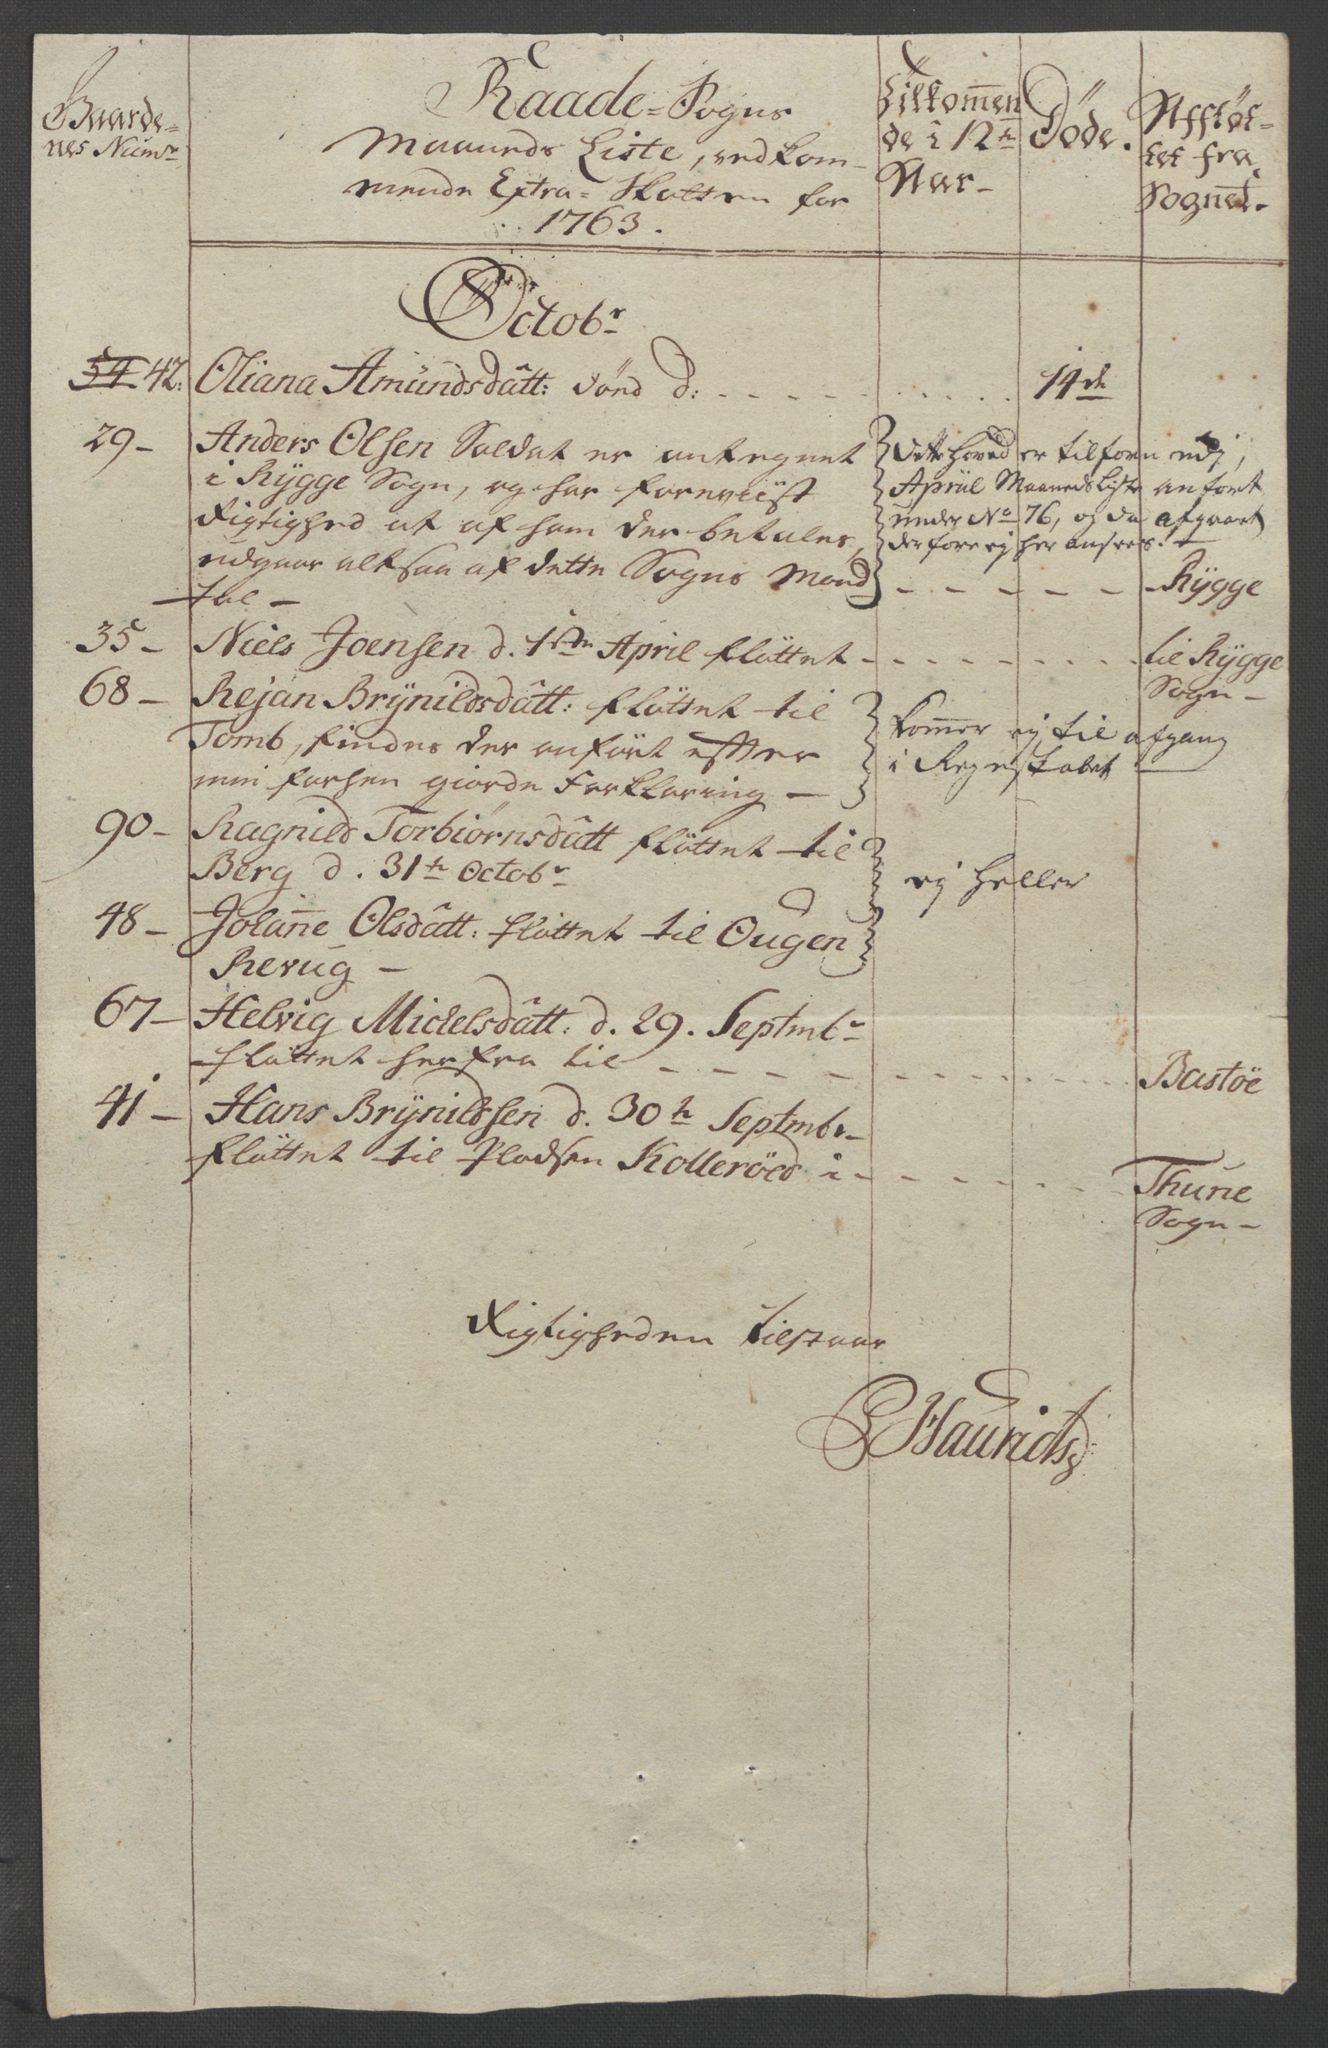 Gaarde-
nes Numr
Raade-Sogns
Maaneds Liste, vedkom-
mende Extra-Skatten for
1763.
Tilkommen
de i 12te
Aar-
Døde.
Afflöt-
tet fra
Sognet.
Octobr
54 42. Oliana Amundsdatt: dönd d: 14de
29- Anders Olsen Soldat er antegnet
i Rÿgge Sogn, og har foreviist
Rigtighed at af ham der betales,
udgaar altsaa af dette Sogns Mand
tal -
Dette hoved er tilforn udj
Apriil Maaneds Liste anfört
under No 76, og da afgaaet
derfore ej her ansees.
Rÿgge
35- Niels Joensen d. 1ste April flöttet til Rÿgge
Sogn-
68- Rejan Brÿnildsdatt: flöttet til
Tomb, findes der anfört efter
min forhen giorde Forklaring -
kommer ej til afgang
i Regnskabet
90- Ragnild Torbiørnsdatt flöttet til
Berg d. 31te Octobr
ej heller
48- Johanne Olsdatt: flöttet til Ougen
Rerug -
67- Helvig Mickelsdatt: d. 29. Septmbr
flöttet herfra til Bastöe
41- Hans Brÿnildssen d. 30te Septmbr
flöttet til Pladsen Kolleröed i Thune
Sogn-
Rigtigheden tilstaar
Hauridtz